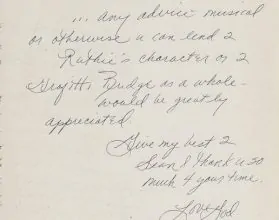 ... any advice musical
or otherwise u can lend 2
Ruthie's character or 2
Graffiti Bridge as a whole -
would be greatly
appreciated.
Give my best 2
Sean & thank u so
much 4 your time.
Love God